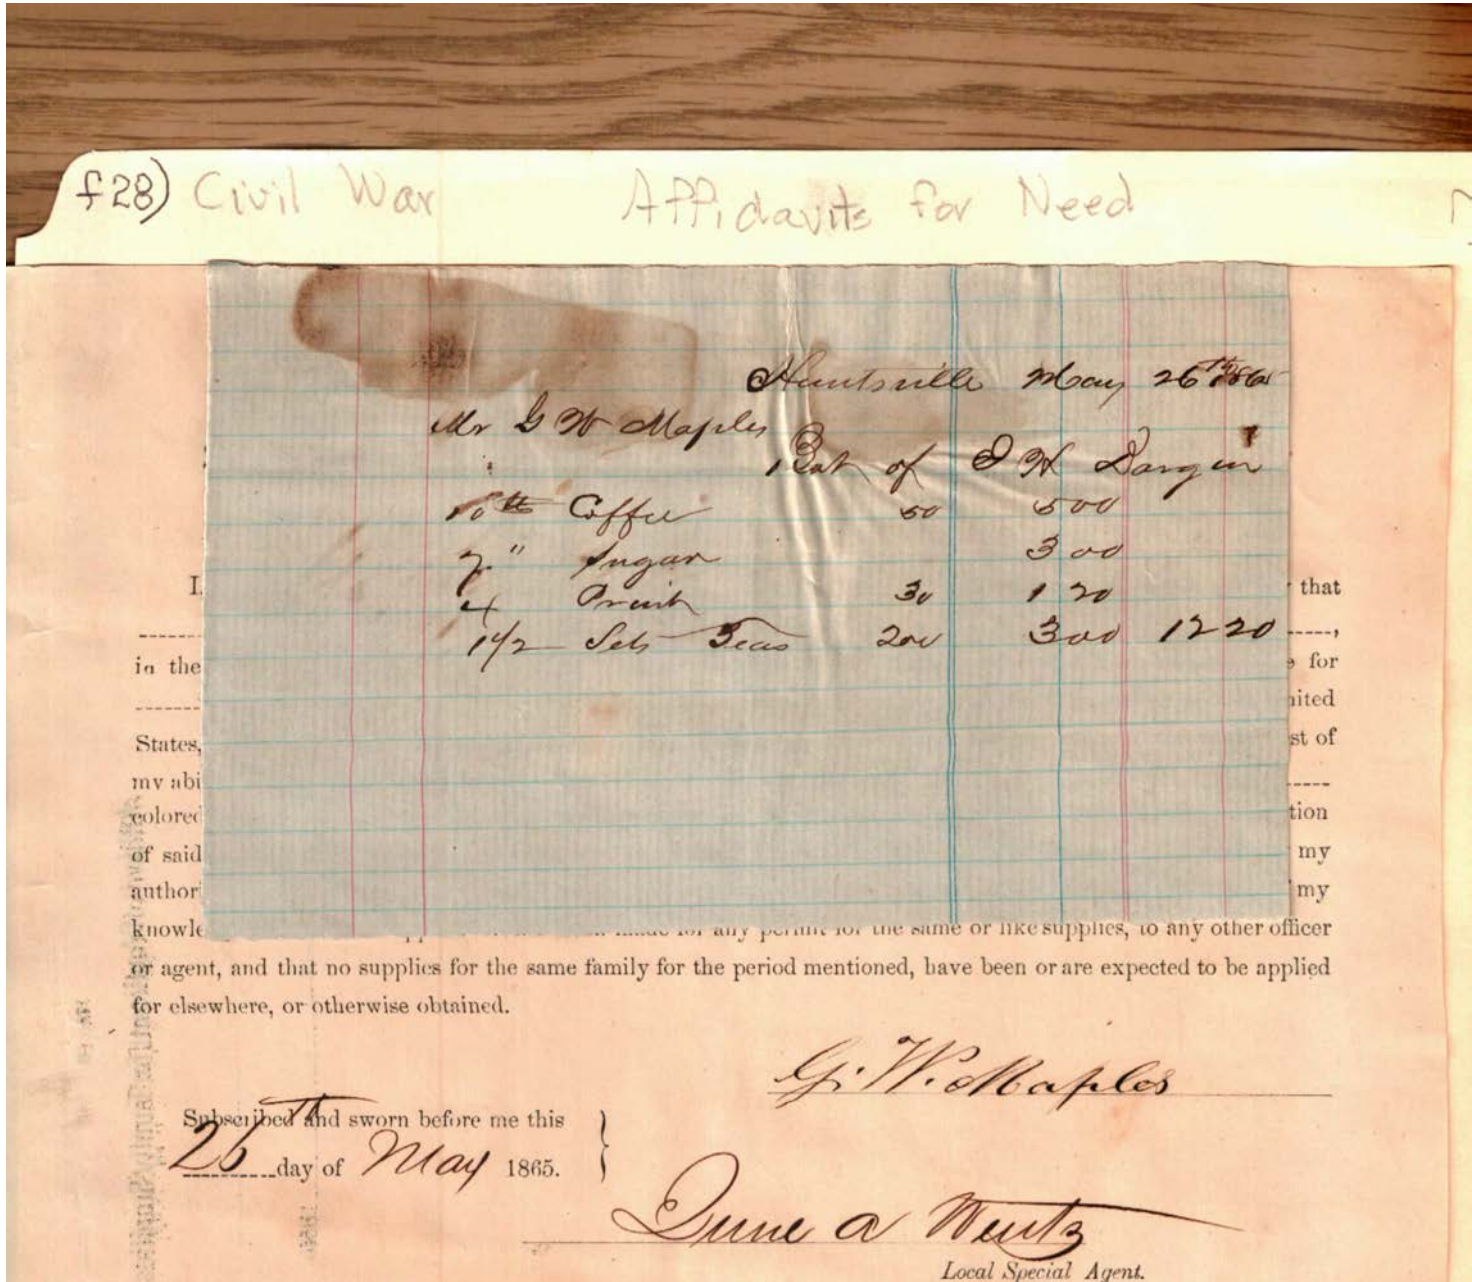 f28) Civil War Affidavits for Need
Huntsville May 26th 1865
Mr G W Maples
Bot of D H Dargin
10 lb Coffee 50 500
7 " Sugar 300
4 Print 30 120
1 1/2 Sets Teas 200 300 1220
I, that
in the for
States, st of
my abi
colored tion
of said my
authori my
knowle for any permit for the same or like supplies, to any other officer
or agent, and that no supplies for the same family for the period mentioned, have been or are expected to be applied
for elsewhere, or otherwise obtained.
G. W. Maples
Subscribed and sworn before me this
26th day of May 1865.
Local Special Agent.